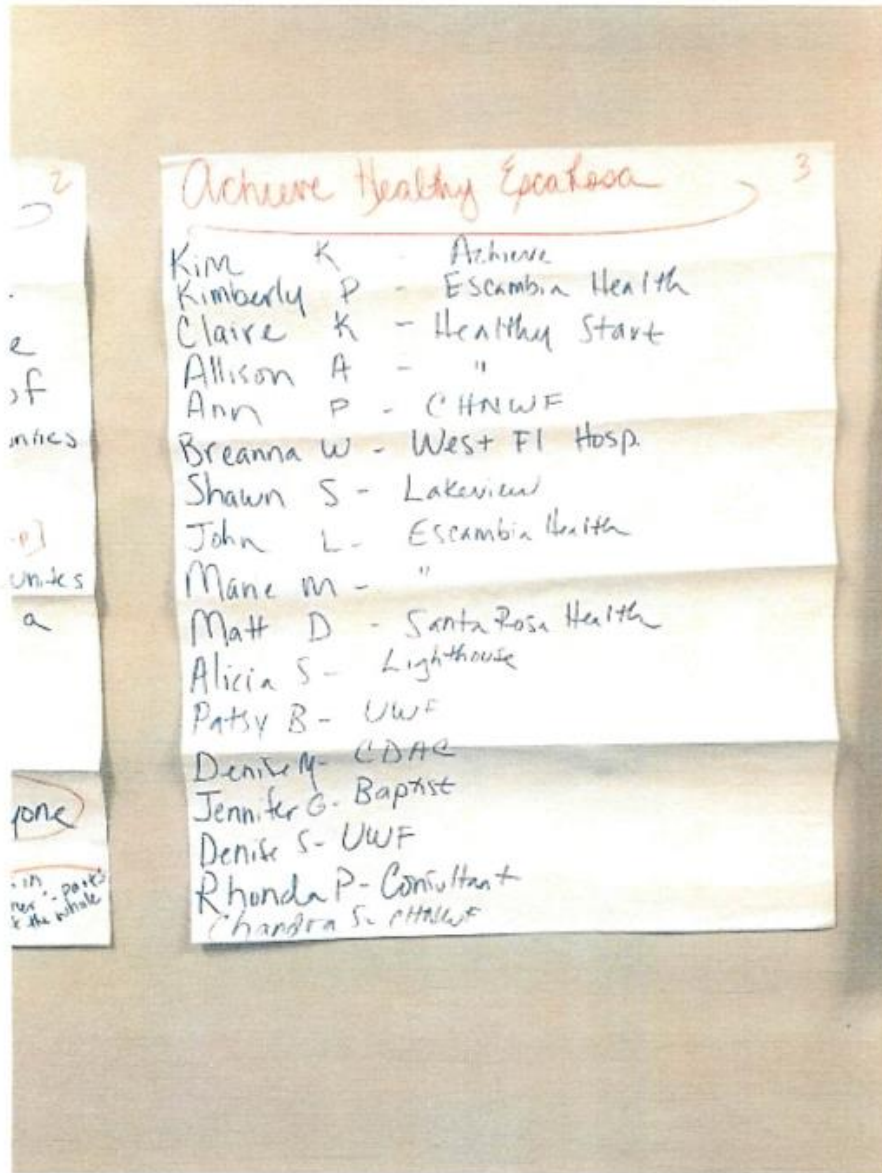 2
e
of
unites
a
yone
in
parts
the whole
Achieve Healthy EscaRosa 3
Kim K - Achieve
Kimberly P - Escambia Health
Claire K - Healthy Start
Allison A - "
Ann P - CHNWF
Breanna W - West Fl Hosp.
Shawn S - Lakeview
John L - Escambia Health
Marie M - "
Matt D - Santa Rosa Health
Alicia S - Lighthouse
Patsy B - UWF
Denise M - CDAC
Jennifer G - Baptist
Denise S - UWF
Rhonda P - Consultant
Chandra S - CHNWF